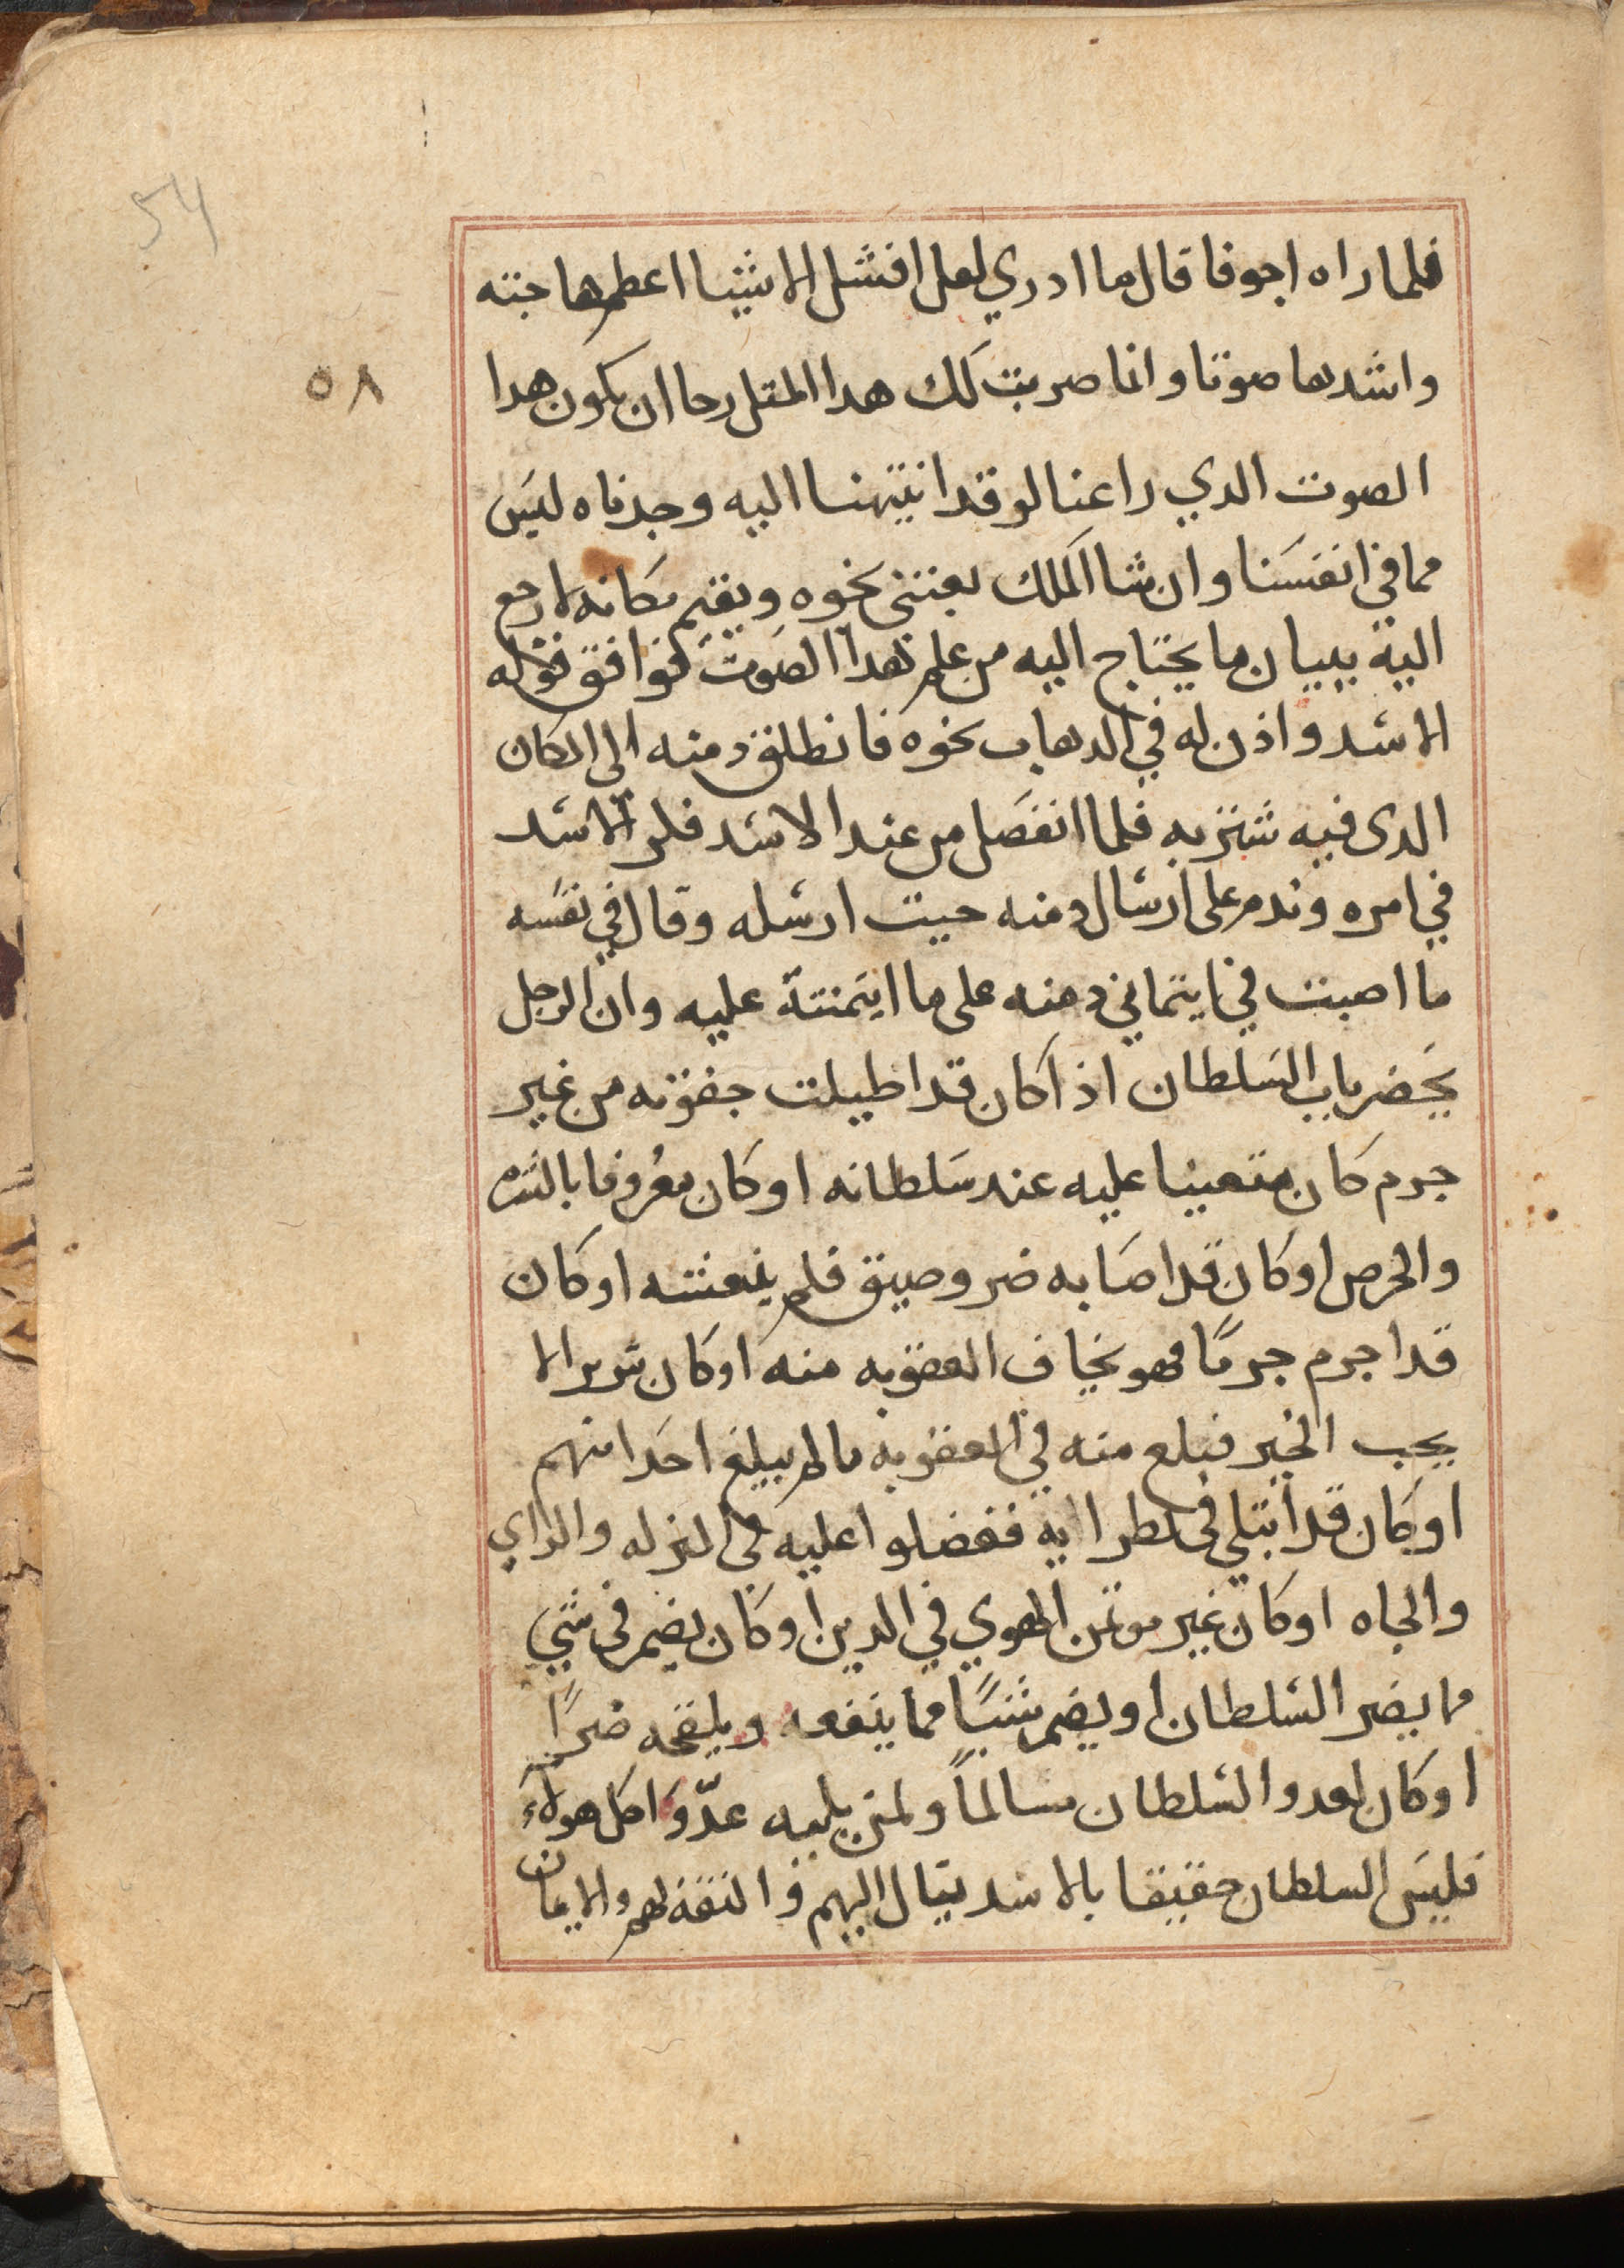 54
٥٨
فلما راه اجوفا قال ما ادري لعل افشل الاشيا اعظمها جته
واشدها صوتا وانما ضربت لك هدا المتل رجا ان يكون هدا
الصوت الدي راعنا لو قد انتهنا اليه وجدناه ليس
مما في انفسنا وان شا الملك بعتني نحوه ويقيم مكانه لارجع
الية ببيان ما يحتاج اليه من علم هدا الصوت فوافق قوله
الاسد واذن له في الدهاب نحوه فانطلق دمنه الى المكان
الدى فيه شتربه فلما انفصل من عند الاسد فكر الاسد
في امره وندم على ارسال دمنه حيت ارسله وقال في نفسه
ما اصبت في ايتماني دمنه على ما ايتمنتة عليه وان الرجل
يحضر باب السلطان اذا كان قد اطيلت جفوته من غير
جرم كان متعينا عليه عند سلطانه او كان معروفا بالشره
والحرص او كان قد اصابه ضر وضيق فلم ينعشه او كان
قد اجرم جرمًا فهو يخاف العقوبه منه او كان شريرا لا
يحب الخير فبلغ منه في العقوبه ما لم يبلغ احدا منهم
او كان قد ابتلي في نظرايه ففضلوا عليه في المنزله والراي
والجاه او كان غير موتمن الهوي في الدين او كان يضمر في شي
ما يضر السلطان او يضم شيًا مما ينفعه ويلقحه ضرًا
او كان لعدو السلطان مسالمًا ولمن يليه عدّوًا كل هولاء
فليس السلطان حقيقا بالاسد تيال اليهم والثقه لهم والايمان